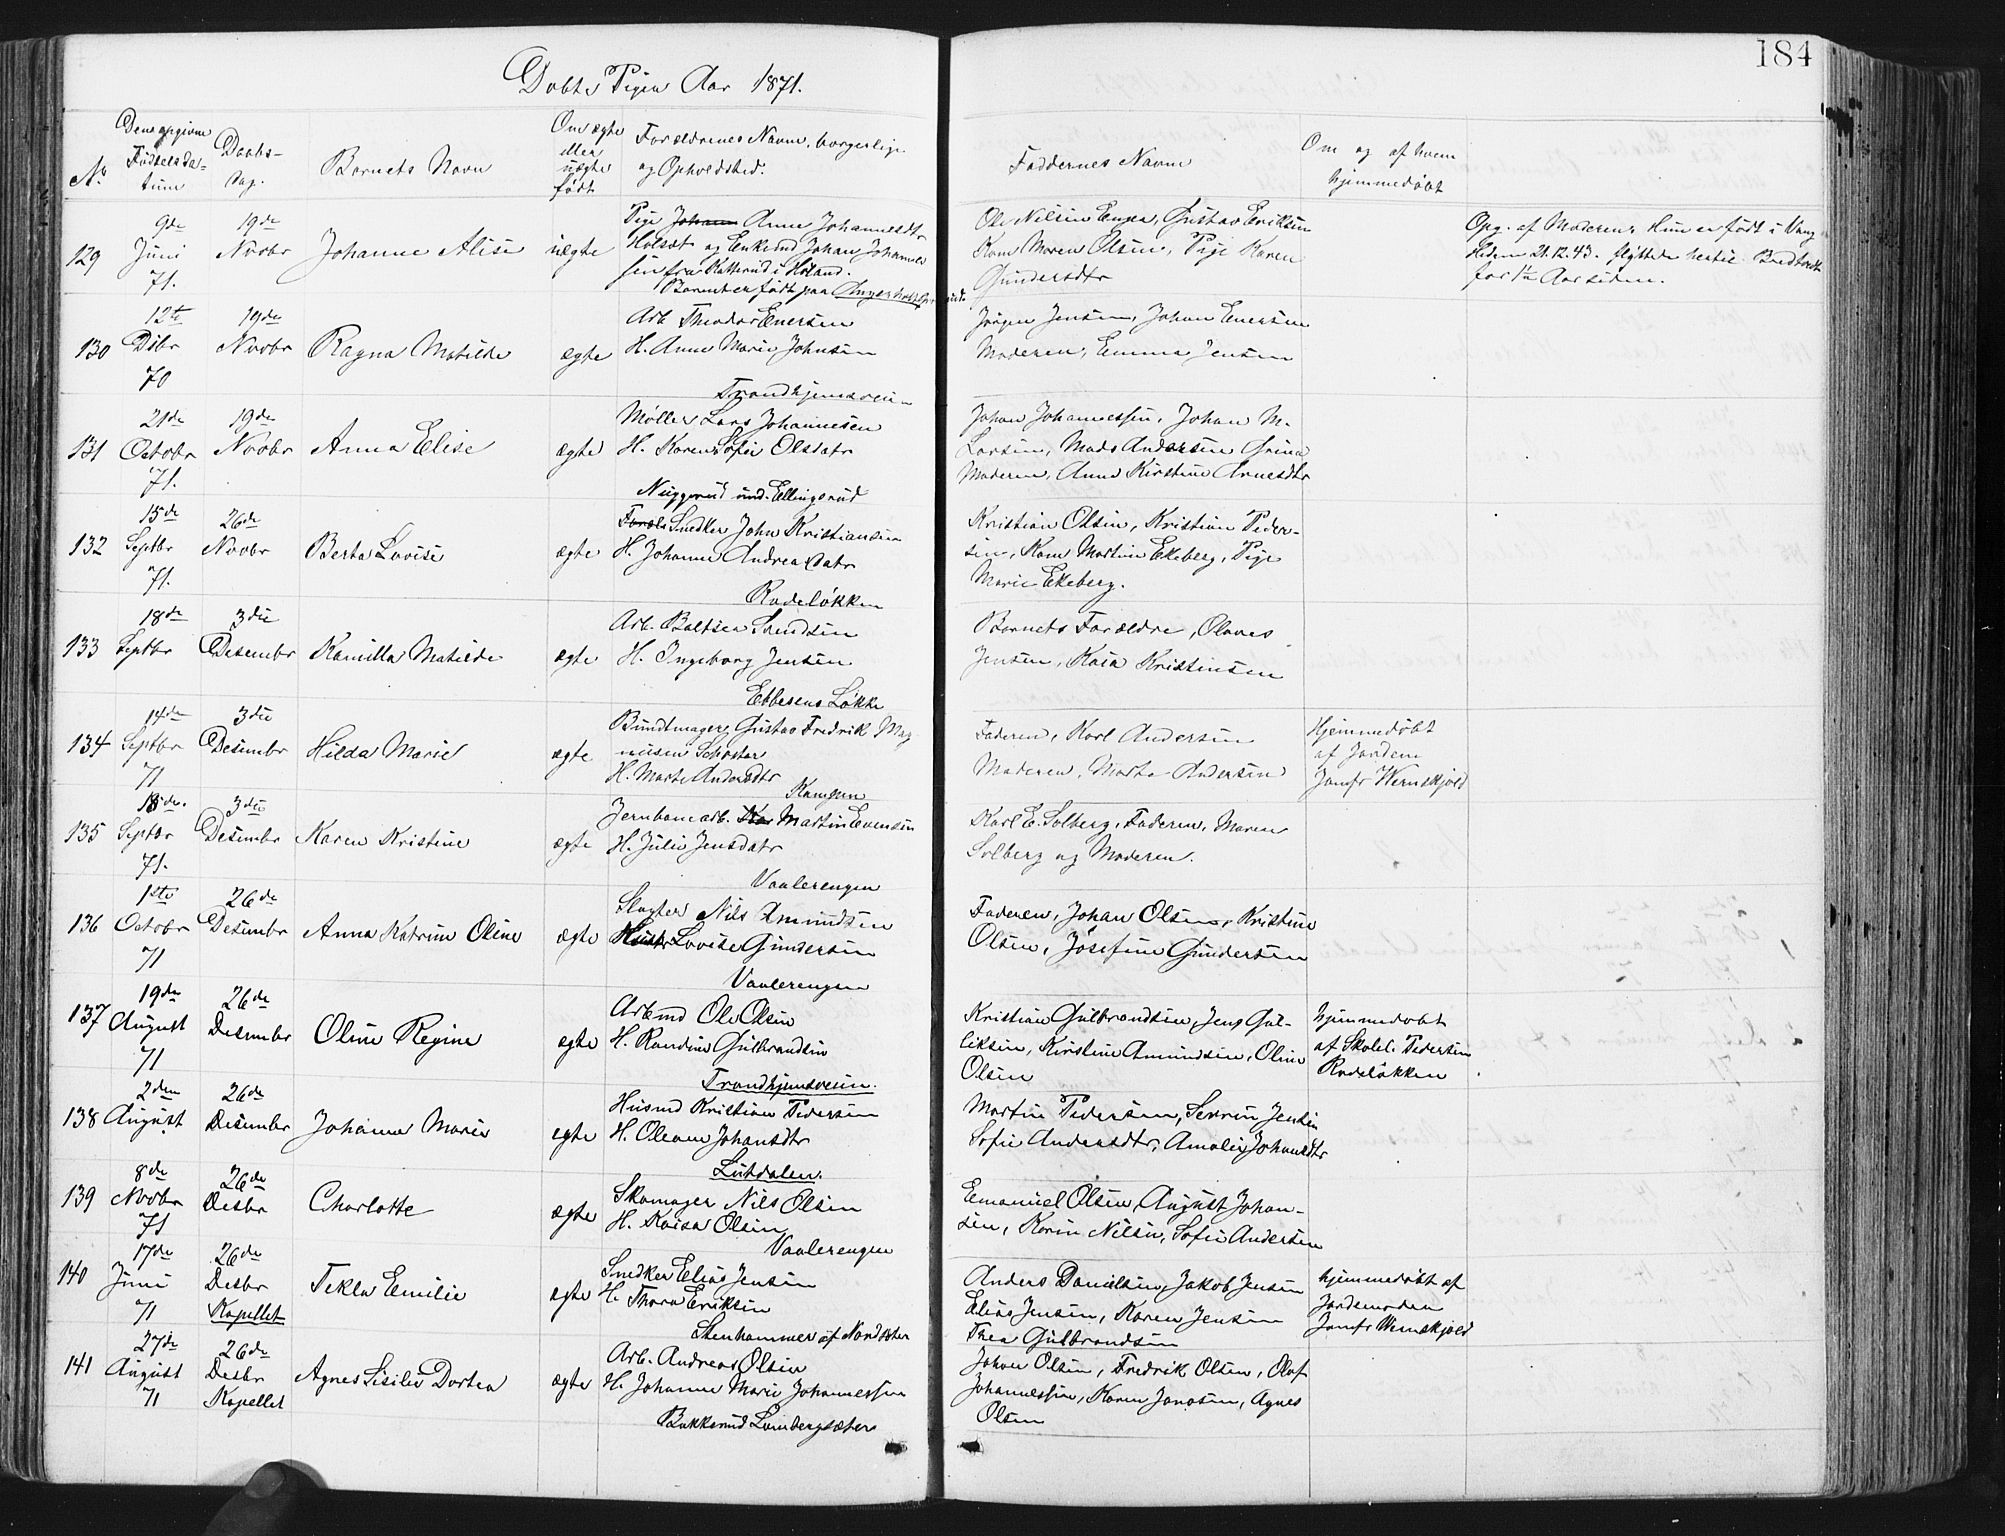 184
Døbte Piger Aar 1871.
No.
Den opgivne
Fødselsda-
tum
Daabs-
dag.
Barnets Navn
Om ægte
eller
uægte
født
Forældrenes Navne, borgerlige
og Opholdsted.
Faddernes Navne
Om og af hvem
hjemmedøbt
129
9de
Juni
71.
19de
Novbr
Johanne Alise
uægte
Pige Anne Johannesdtr
og Enkemd Johan Johannes
sen fra Katterud i Høland.
Barnet er født paa
Ole Nilsen Engen, Gustav Eriksen
Kone Maren Olsen, Pige Karen
Gundersdtr
Opg. af Moderen. Hun er født i Vang
Hedem 21.12.43. flyttede hertil
for 1½ Aar siden.
130
12te
Dsbr
70
19de
Novbr
Ragna Matilde
ægte
Arb. Theodor Evensen
H. Anne Marie Johnsen
Trondhjemsveien
Jørgen Jensen, Johan Evensen
Moderen, Emma Jensen
131
21de
Octobr
71.
19de
Novbr
Anna Elise
ægte
Møller Lars Johannesen
H. Karen Sofie Olsdatr
und. Ellingsrud
Johan Johannessen, Johan M.
Larsen, Mads Andersen
Moderen, Anne Kirstine Arnesdtr
132
15de
Septbr
71.
26de
Novbr
Berta Lovise
ægte
Snedker John Kristiansen
H. Johanne Andrea datr
Rodeløkken
Kristian Olsen, Kristian Peder-
sen, Kone Martine Ekeberg, Pige
Marie Ekeberg.
133
18de
Septbr
3die
Desembr
Kamilla Matilde
ægte
Arb. Baltser Svendsen
H. Ingeborg Jensen
Ebbesens Løkke
Barnets Forældre, Olaves
Jensen, Kaia Kristinsen
134
14de
Septbr
71
3die
Desembr
Hilda Marie
ægte
Bundtmager Gustav Fredrik Mag
nusen Schøster
H. Marte Andersdtr
Kampen
Faderen, Karl Andersen
Moderen, Marte Andersen
Hjemmedøbt
af Jordem
Jomfr Wernskjold
135
18de.
Septbr
71.
3die
Desembr
Karen Kristine
ægte
Jernbanearb. Martin Evensen
H. Julie Jensdatr
Vaalerengen
Karl E. Solberg, Faderen, Maren
Solberg og Moderen.
136
1ste
Octobr
71
26de
Desembr
Anna Katrine Oline
ægte
Slagter Nils Amundsen
Lovise Gundersen
Vaalerengen
Faderen, Johan Olsen, Kristine
Olsen, Josefine Gundersen
137
19de
August
71
26de
Desembr
Oline Regine
ægte
Arbmd Ole Olsen
H. Randine Gulbrandsen
Trondhjemsveien.
Kristian Gulbrandsen, Jens Gul-
liksen, Kirstine Amundsen, Oline
Olsen
hjemmedøbt
af Skolel. Pedersen
Rodeløkken
138
2den
August
26de
Desembr
Johanne Marie
egte
Husmd Kristian Pedersen
H. Oleane Johansdtr
Lutdalen.
Martin Pedersen, Severin Jensen
Sofie Andersdtr, Amalie Johansdtr
139
8de
Novbr
71
26de
Desbr
Charlotte
ægte
Skomager Nils Olsen
H. Kaisa Olsen
Vaalerengen
Emanuel Olsen, August Johan-
sen, Karin Nilsen, Sofie Andersen
140
17de
Juni
71
26de
Desbr
Kapellet
Tekla Emilie
ægte
Snedker Elias Jensen
H. Thora Eriksen
Stenhammer af Nordseter
Anders Danielsen, Jakob Jensen
Elias Jensen, Karen Jensen
Thea Gulbrandsen
hjemmedøbt af
Jordemoderen
Jomfr Wernskjold
141
27de
August
71
26de
Desbr
Kapellet
Agnes Sisilie Dortea
ægte
Arb. Andreas Olsen
H. Johanne Marie Johannessen
Bakkerud Lambergsæter
Johan Olsen, Fredrik Olsen, Olaf
Johannessen, Karen Jonassen, Agnes
Olsen